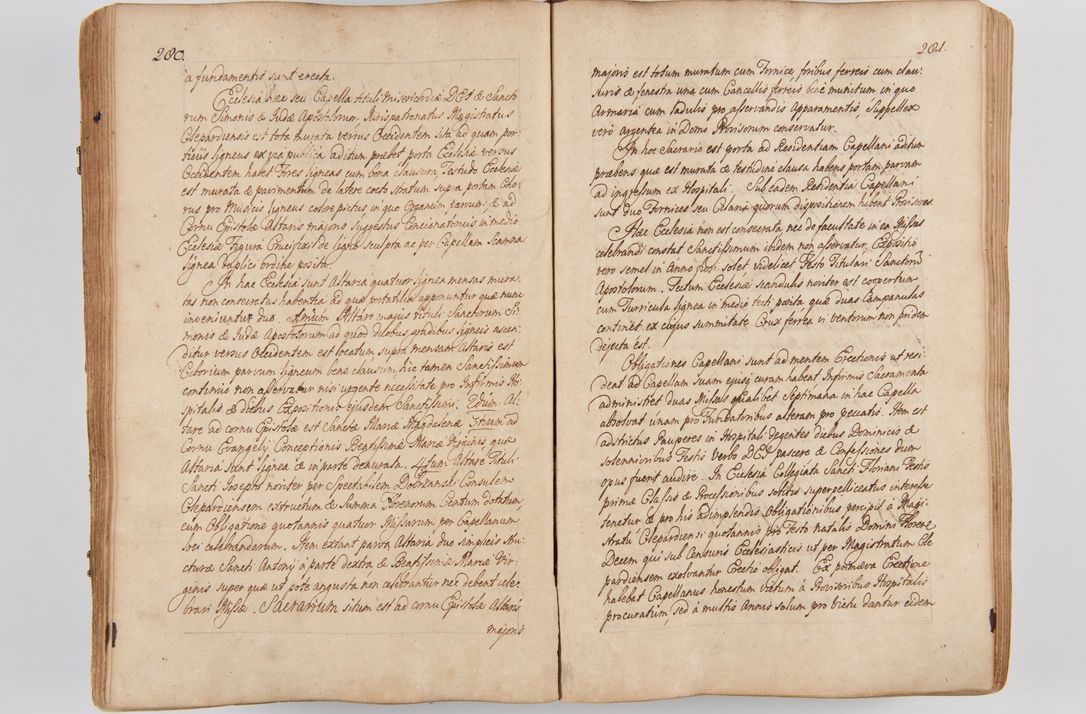 280.
a fundamentis sunt erecta.
Ecclesia haec seu Capella tituli Misericordiae DEI & Sancto
rum Simonis & Judae Apostolorum, Jurispatronatus Magistratus
Cleparduensis est tota murata versus Occidentem sita ad quam por
ticus ligneus ex via publica aditum praebet porta Ecclesiae versus
Occidentem habet fores ligneas cum bona clausura Testudo Ecclesiae
est murata & pavimentum de latere cocto stratum supra portam Cho:
rus pro Musicis ligneus colore pictus, in quo Organum parvum, &
Cornu Epistolae Altaris majoris suggestus Concionatorius in medio
Ecclesiae Figura Crucifixi de ligno sculpta ac per Capellam Scamna
lignea duplici ordine posita.
In hac Ecclesia sunt Altaria quatuor lignea mensas mura
tas non consecratas habentia ad quae portatilia apponuntur quae nunc
inveniuntur duo. Primum Altare majus tituli Sanctorum Si
monis & Judae Apostolorum ad quod duobus gradibus ligneis ascen
ditur versus Occidentem est locatum, supra mensam Altaris est
Ciborium parvum ligneum bene clausum, hic tamen Sanctissimum
continuo non asservatur nisi urgente necessitate pro Infirmis Ho
spitalis & diebus Expositionis ejusdem Sanctissimi. 2dum Al
tare ad cornu Epistolae est Sanctae Mariae Magdalenae 3tium ad
Cornu Evangelij Conceptionis Beatissimae Mariae Virginis quae
Altaria sunt lignea & in parte deaurata. 4tum Altare tituli
Sancti Josephi noviter per Spectabilem Consulem
Cleparduensem extructum & Summa Florenorum Centum dotatum,
cum Obligatione quotannis quatuor Missarum per Capellanum
loci celebrandarum. Item extant parva Altaria duo simplicis stru
cturae Sancti Antonij a parte dextra & Beatissimae Mariae Vir
ginis super quae ut pote angusta non celebrantur nec debent cele
brari Missae. Sacrarium situm est ad cornu Epistolae Altaris
majoris
281.
majoris est totum muratum cum Fornice, foribus ferreis cum clau
suris & fenestra una cum Cancellis ferreis bene munitum in quo
Armaria cum ladulis pro asservandis Apparamentis, Suppellex
vero argentea in Domo Provisorum conservatur.
In hoc Sacrario est porta ad Residentiam Capellani aditum
praebens quae est murata & testudine clausa habens portam parvam
ad ingressum ex Hospitali. Sub eadem Residentia Capellani
sunt duo Fornices seu Celaria quorum dispositionem habent Provisores.
Haec Ecclesia non est consecrata nec de facultate in ea Missas
celebrandi constat Sanctissimum ibidem non asservatur, Expositio
vero semel in Anno fieri solet videlicet Festo Titulari Sanctorum
Apostolorum. Tectum Ecclesiae scandulis noviter est coopertum
cum Turricula lignea in medio tecti posita quae duas Campanulas
continet ex cujus summitate Crux ferrea vi ventorum non pridem
dejecta est.
Obligationes Capellani sunt ad mentem Erectionis ut resi:
deat ad Capellam Suam ejusq curam habeat Infirmis Sacramenta
administret duas Missas qualibet Septimana in hac Capella
absolvat unam pro Fundatoribus alteram pro peccatis. Item est
adstrictus Pauperes in Hospitali degentes diebus Dominicis &
solennioribus Festis verbo DEI pascere & Confessiones dum
opus fuerit audire. In Ecclesia Collegiata Sancti Floriani Festis
primae Classis & Processionibus solitis superpelliceatus interesse
tenetur & pro his adimplendis Obligationibus percipit a Magi
stratu Cleparduensi quotannis pro Festo natalis Domini Florenos
Decem qui sub Censuris Ecclesiasticis ut per Magistratum Cle
parduensem exolvantur Erectio obligat. Ex primaeva Erectione
habebat Capellanus honestum victum a Provisoribus Hospitalis
procuratum, sed a multis Annis solum pro victu dantur eidem